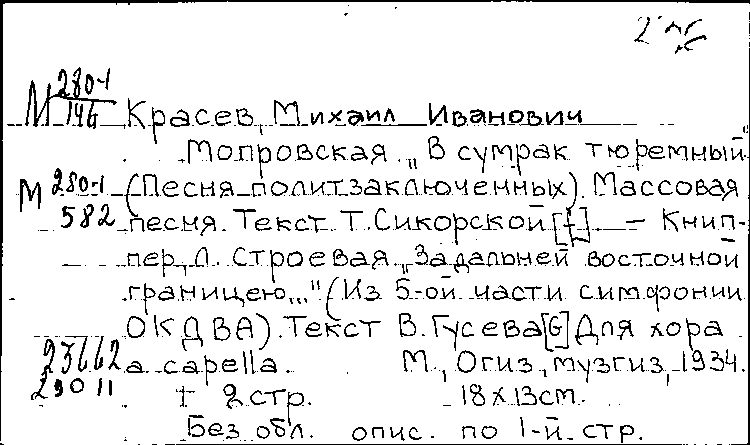 М 280-1
146
Красев, Михаил Иванович
Мопровская „В сумрак тюремный"
М 280-1
582
(Песня политзаключенных). Массовая
песня. Текст Т. Сикорской [f] – Книп-
пер, Л. Строевая „За дальней восточной
границею..." (Из 5-ой части симфонии
ОКДВА). Текст В. Гусева [G] Для хора
a capella. М., Огиз, музгиз, 1934.
23662
29011
† 2 стр. 18х13cm.
Без обл. опис. по 1-й стр.